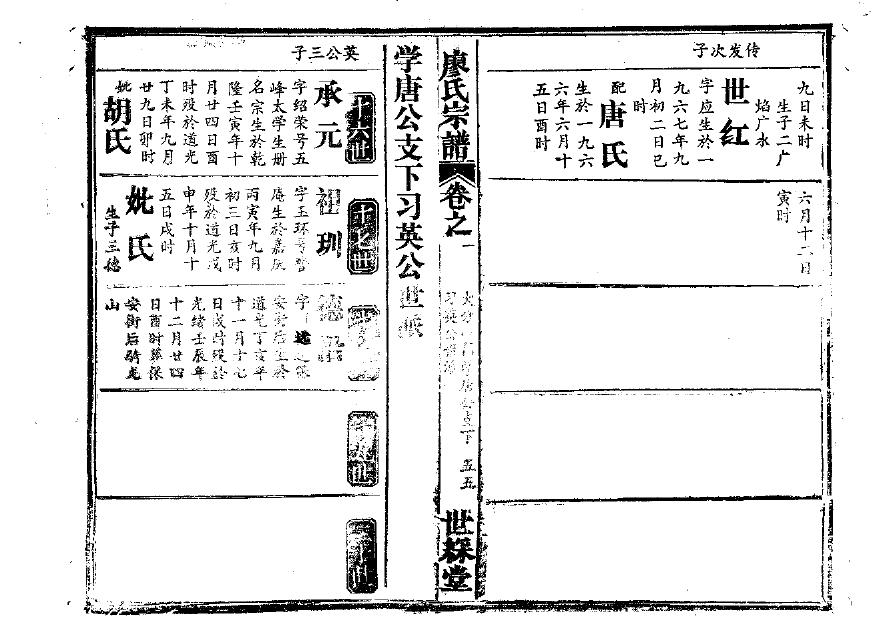 传发次子
九日未时
生子二广
焰广水
世红
字应生於一
九六七年九
月初二日巳
时
配
唐氏
生於一九六
六年六月十
五日酉时
六月十二日
寅时
廖氏宗譜
卷之一
五五
世綵堂
学唐公支下习英公世派
英公三子
承元
字绍荣号五
峰太学生册
名宗生於乾
隆壬寅年十
月廿四日酉
时殁於道光
丁未年九月
廿九日卯时
妣
胡氏
祖珋
字玉环号
庵生於嘉庆
丙寅年九月
初三日亥时
殁於道光戊
申年十月十
五日戌时
妣氏
生子三德
德
字
安街后生於
道光丁亥年
十一月十七
日戌时殁於
光绪壬辰年
十二月廿四
日酉时葬保
安街后骑龙
山